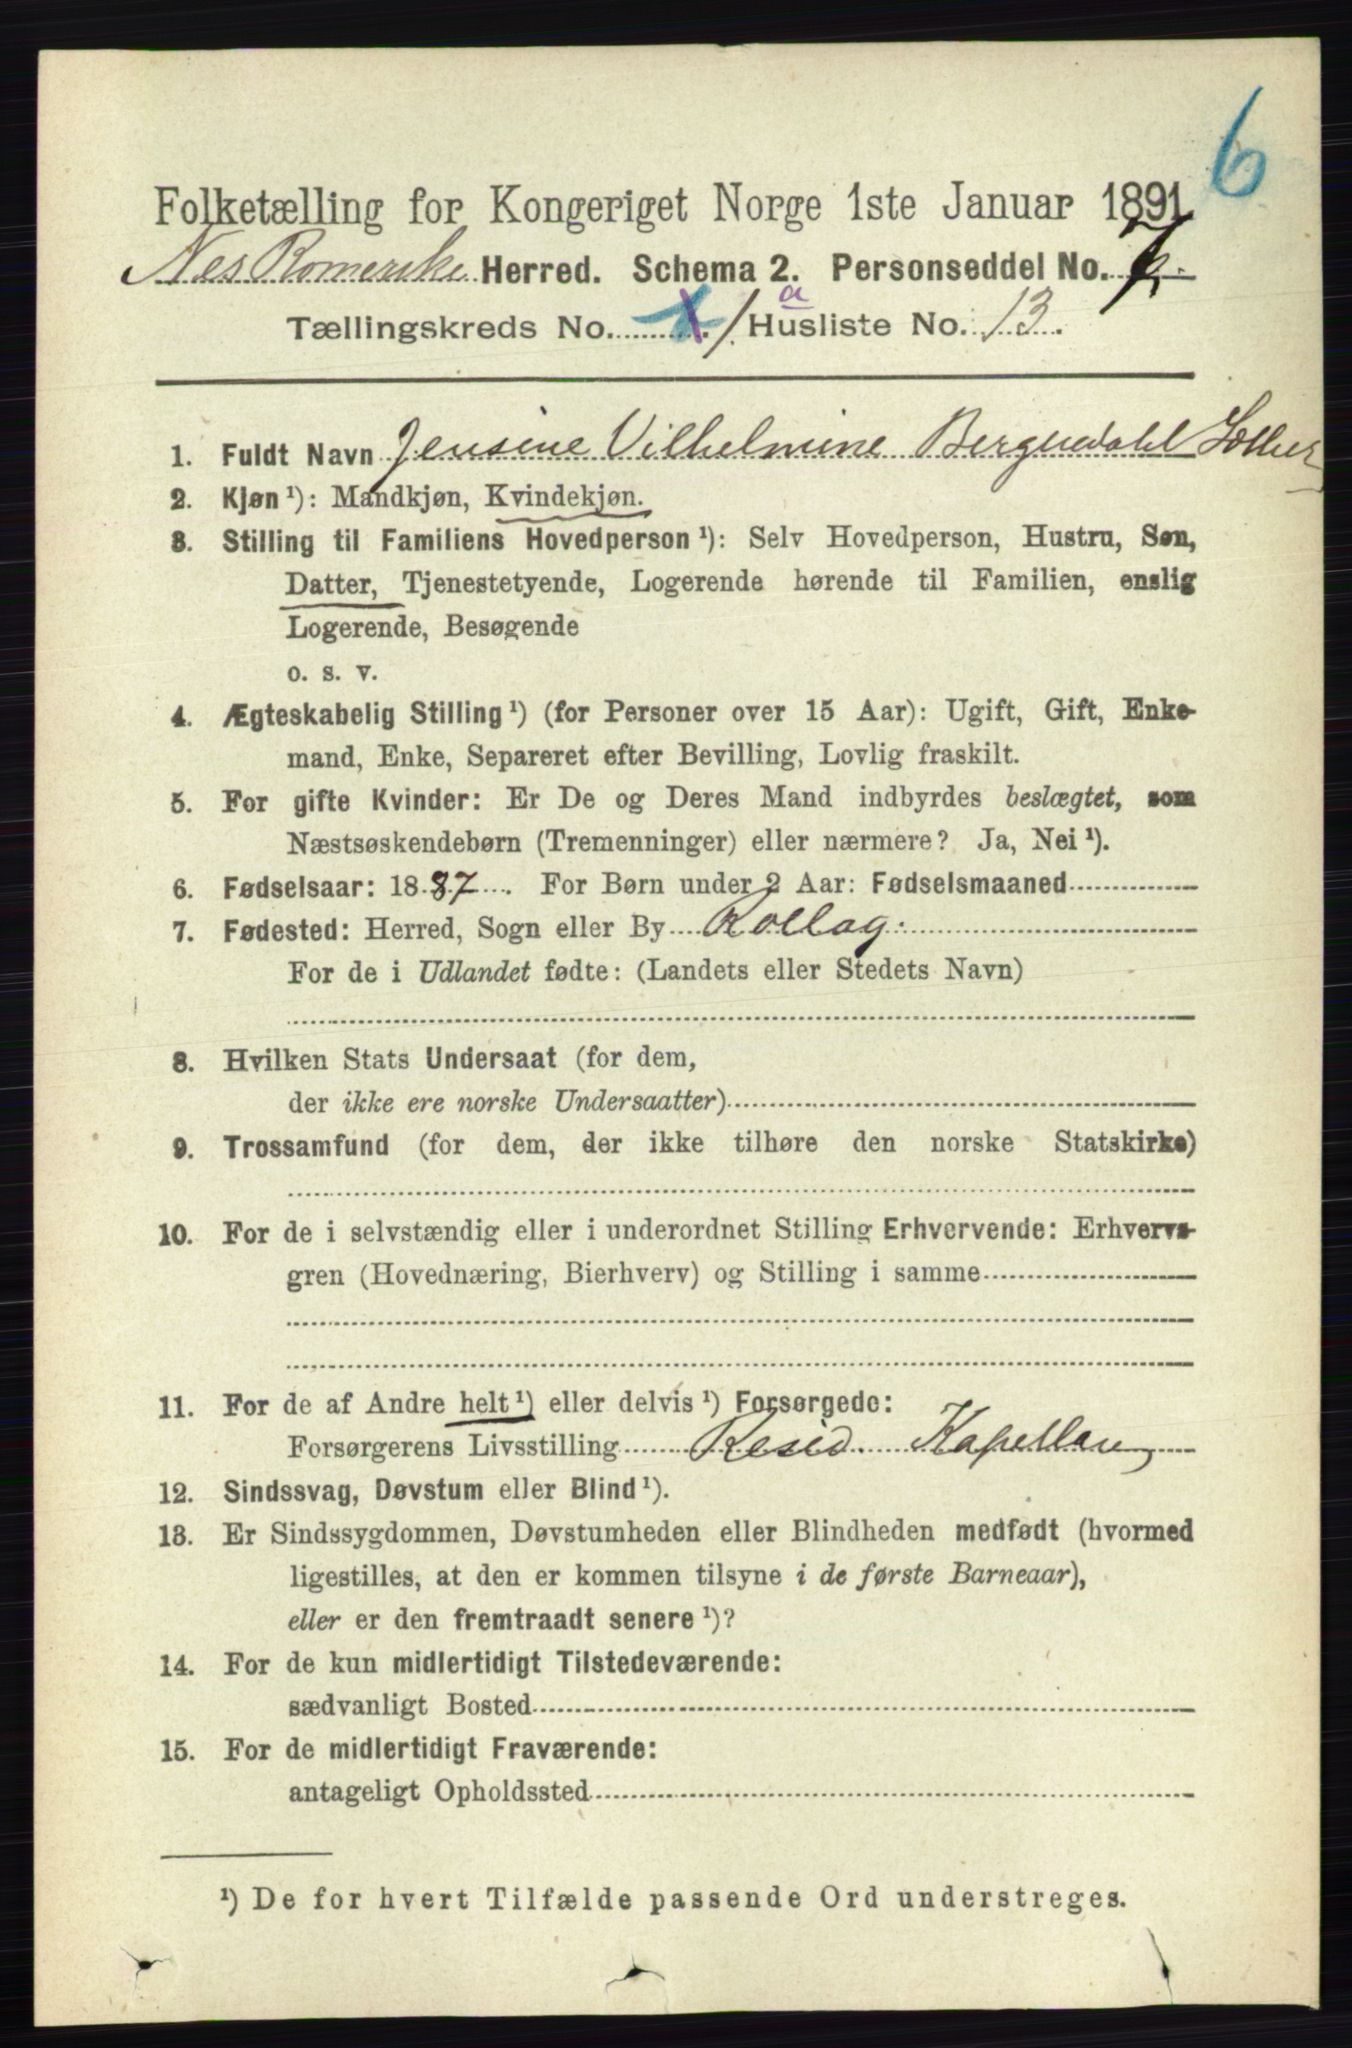 6
Folketælling for Kongeriget Norge 1ste Januar 1891.
Nes Romerike Herred. Schema 2. Personseddel No.
Tællingskreds No. 1. a Husliste No. 13.
1. Fuldt Navn Jensine Vilhelmine Bergendahl
2. Kjøn ¹): Mandkjøn, Kvindekjøn.
3. Stilling til Familiens Hovedperson ¹): Selv Hovedperson, Hustru, Søn,
Datter, Tjenestetyende, Logerende hørende til Familien, enslig
Logerende, Besøgende
o. s. v.
4. Ægteskabelig Stilling ¹) (for Personer over 15 Aar): Ugift, Gift, Enke-
mand, Enke, Separeret efter Bevilling, Lovlig fraskilt.
5. For gifte Kvinder: Er De og Deres Mand indbyrdes beslægtet, som
Næstsøskendebørn (Tremenninger) eller nærmere? Ja, Nei ¹).
6. Fødselsaar: 1887. For Børn under 2 Aar: Fødselsmaaned
7. Fødested: Herred, Sogn eller By Rollag.
For de i Udlandet fødte: (Landets eller Stedets Navn)
8. Hvilken Stats Undersaat (for dem,
der ikke ere norske Undersaatter)
9. Trossamfund (for dem, der ikke tilhøre den norske Statskirke)
10. For de i selvstændig eller i underordnet Stilling Erhvervende: Erhvervs-
gren (Hovednæring, Bierhverv) og Stilling i samme
11. For de af Andre helt ¹) eller delvis ¹) Forsørgede:
Forsørgerens Livsstilling Resid. Kapellan
12. Sindssvag, Døvstum eller Blind ¹).
13. Er Sindssygdommen, Døvstumheden eller Blindheden medfødt (hvormed
ligestilles, at den er kommen tilsyne i de første Barneaar),
eller er den fremtraadt senere ¹)?
14. For de kun midlertidigt Tilstedeværende:
sædvanligt Bosted
15. For de midlertidigt Fraværende:
antageligt Opholdssted
¹) De for hvert Tilfælde passende Ord understreges.